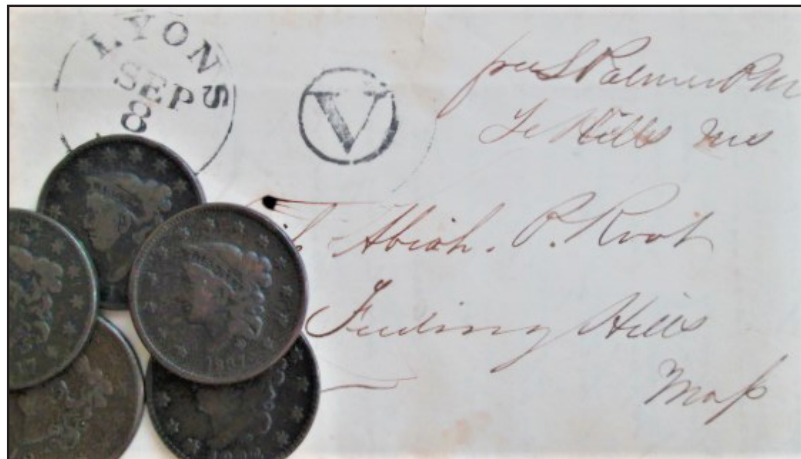 LYONS
SEP
8
V
free S Palmer P.M
Fe Hills Ms
Abiah. P. Root
Feeding Hills
Mass